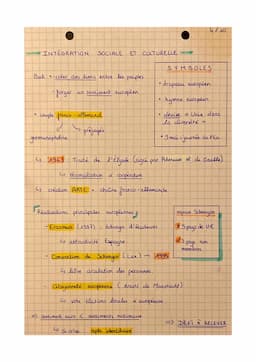 4/20
INTÉGRATION SOCIALE ET CULTURELLE
But • créer des liens entre les peuples
forger un sentiment européen
• couple franco-allemand
préjugés
germanophobie
SYMBOLES
• drapeau européen
• hymne européen
• devise « Unis dans la diversité »
↳ 1963 : Traité de l'Élysée (signé par Adenauer et de Gaulle)
↳ réconciliation & coopération
↳ création ARTE = chaîne franco-allemande
Réalisations principales européennes
- Erasmus (1987) : échange d'étudiants
↳ attractivité Espagne
- Convention de Schengen (Lux.) → 1995
↳ libre circulation des personnes
- Citoyenneté européenne (traité de Maastricht)
↳ vote élections locales & européennes
espace Schengen
pays de l'UE
3 pays non membres
↳ crise identitaire
=> DÉFI À RELEVER